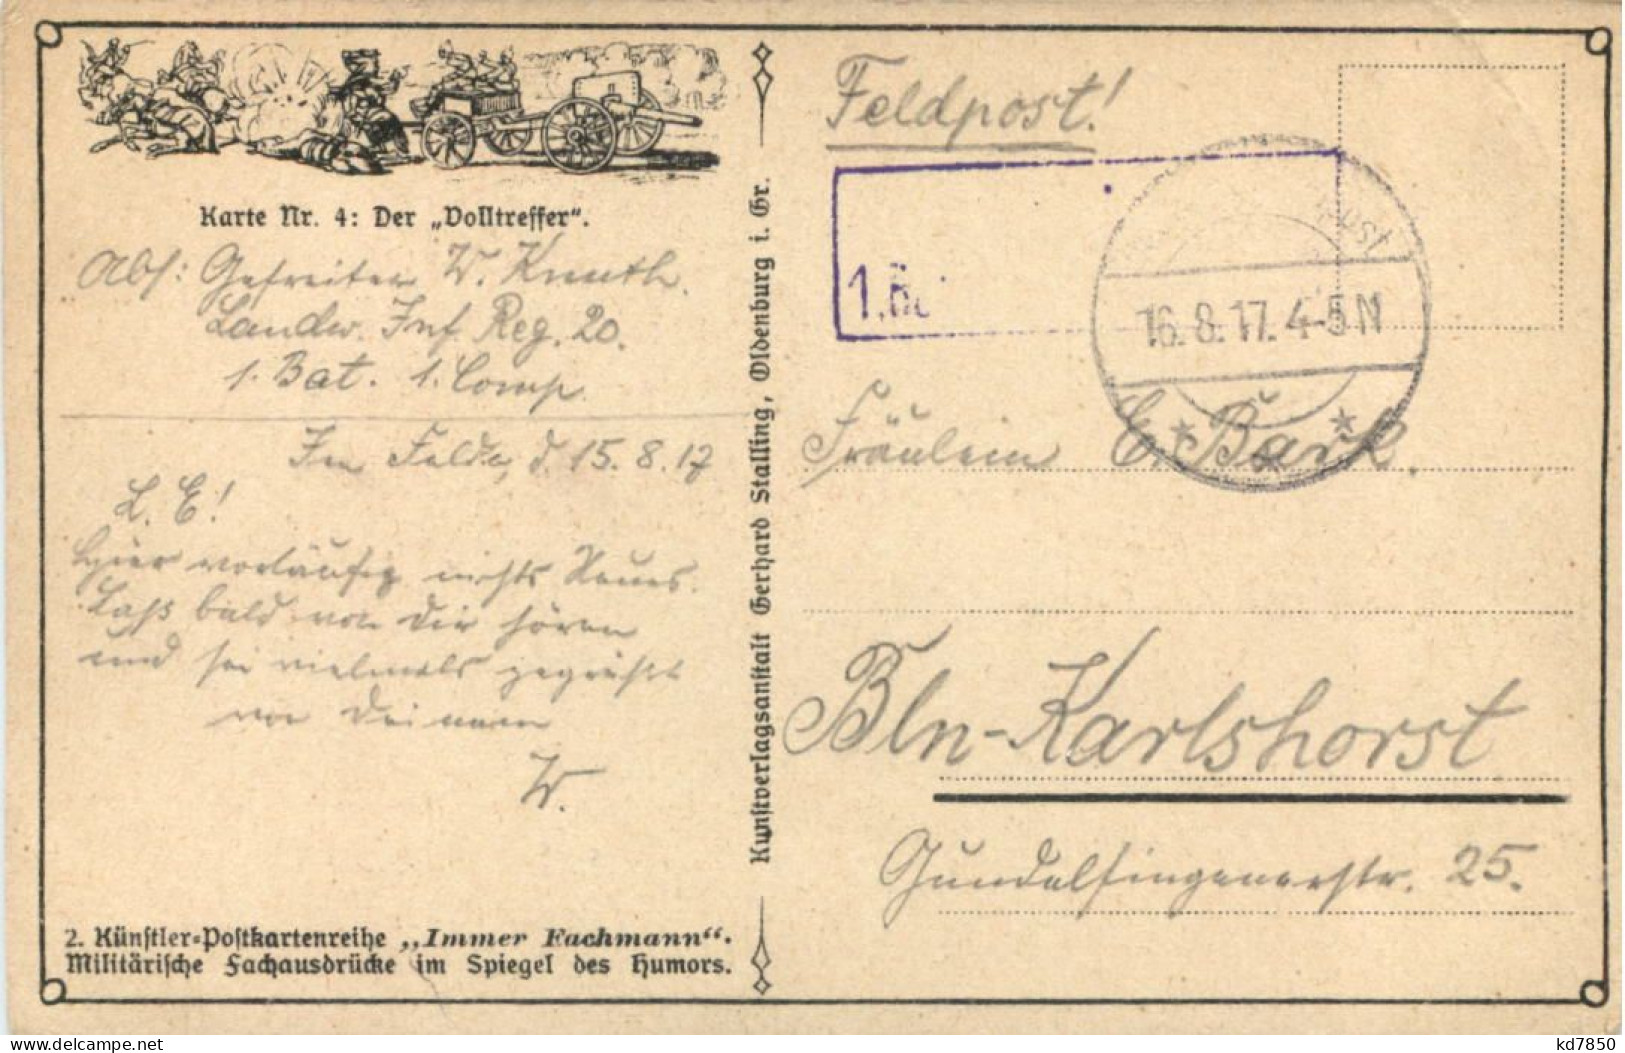 Karte Nr. 4: Der „Volltreffer".
Abs: Gefreiter W. Knuth.
Landw. Inf. Reg. 20.
1. Bat. 1. Comp.
Im Felde, d. 15. 8. 17
L. E!
Hier vorläufig nichts Neues.
Laß bald von dir hören
und sei vielmals gegrüßt
von Deinem
W.
2. Künstler-Postkartenreihe „Immer Fachmann".
Militärische Fachausdrücke im Spiegel des Humors.
Kunstverlagsanstalt Gerhard Stalling, Oldenburg i. Gr.
Feldpost!
16.8.17.4-5 N
Fräulein E. Bark.
Bln-Karlshorst
Gundelfingenerstr. 25.
kd7850